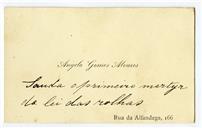 Angelo Gomes Alvares
Sauda o primeiro martyr
da lei das rolhas
Rua da Alfandega, 166